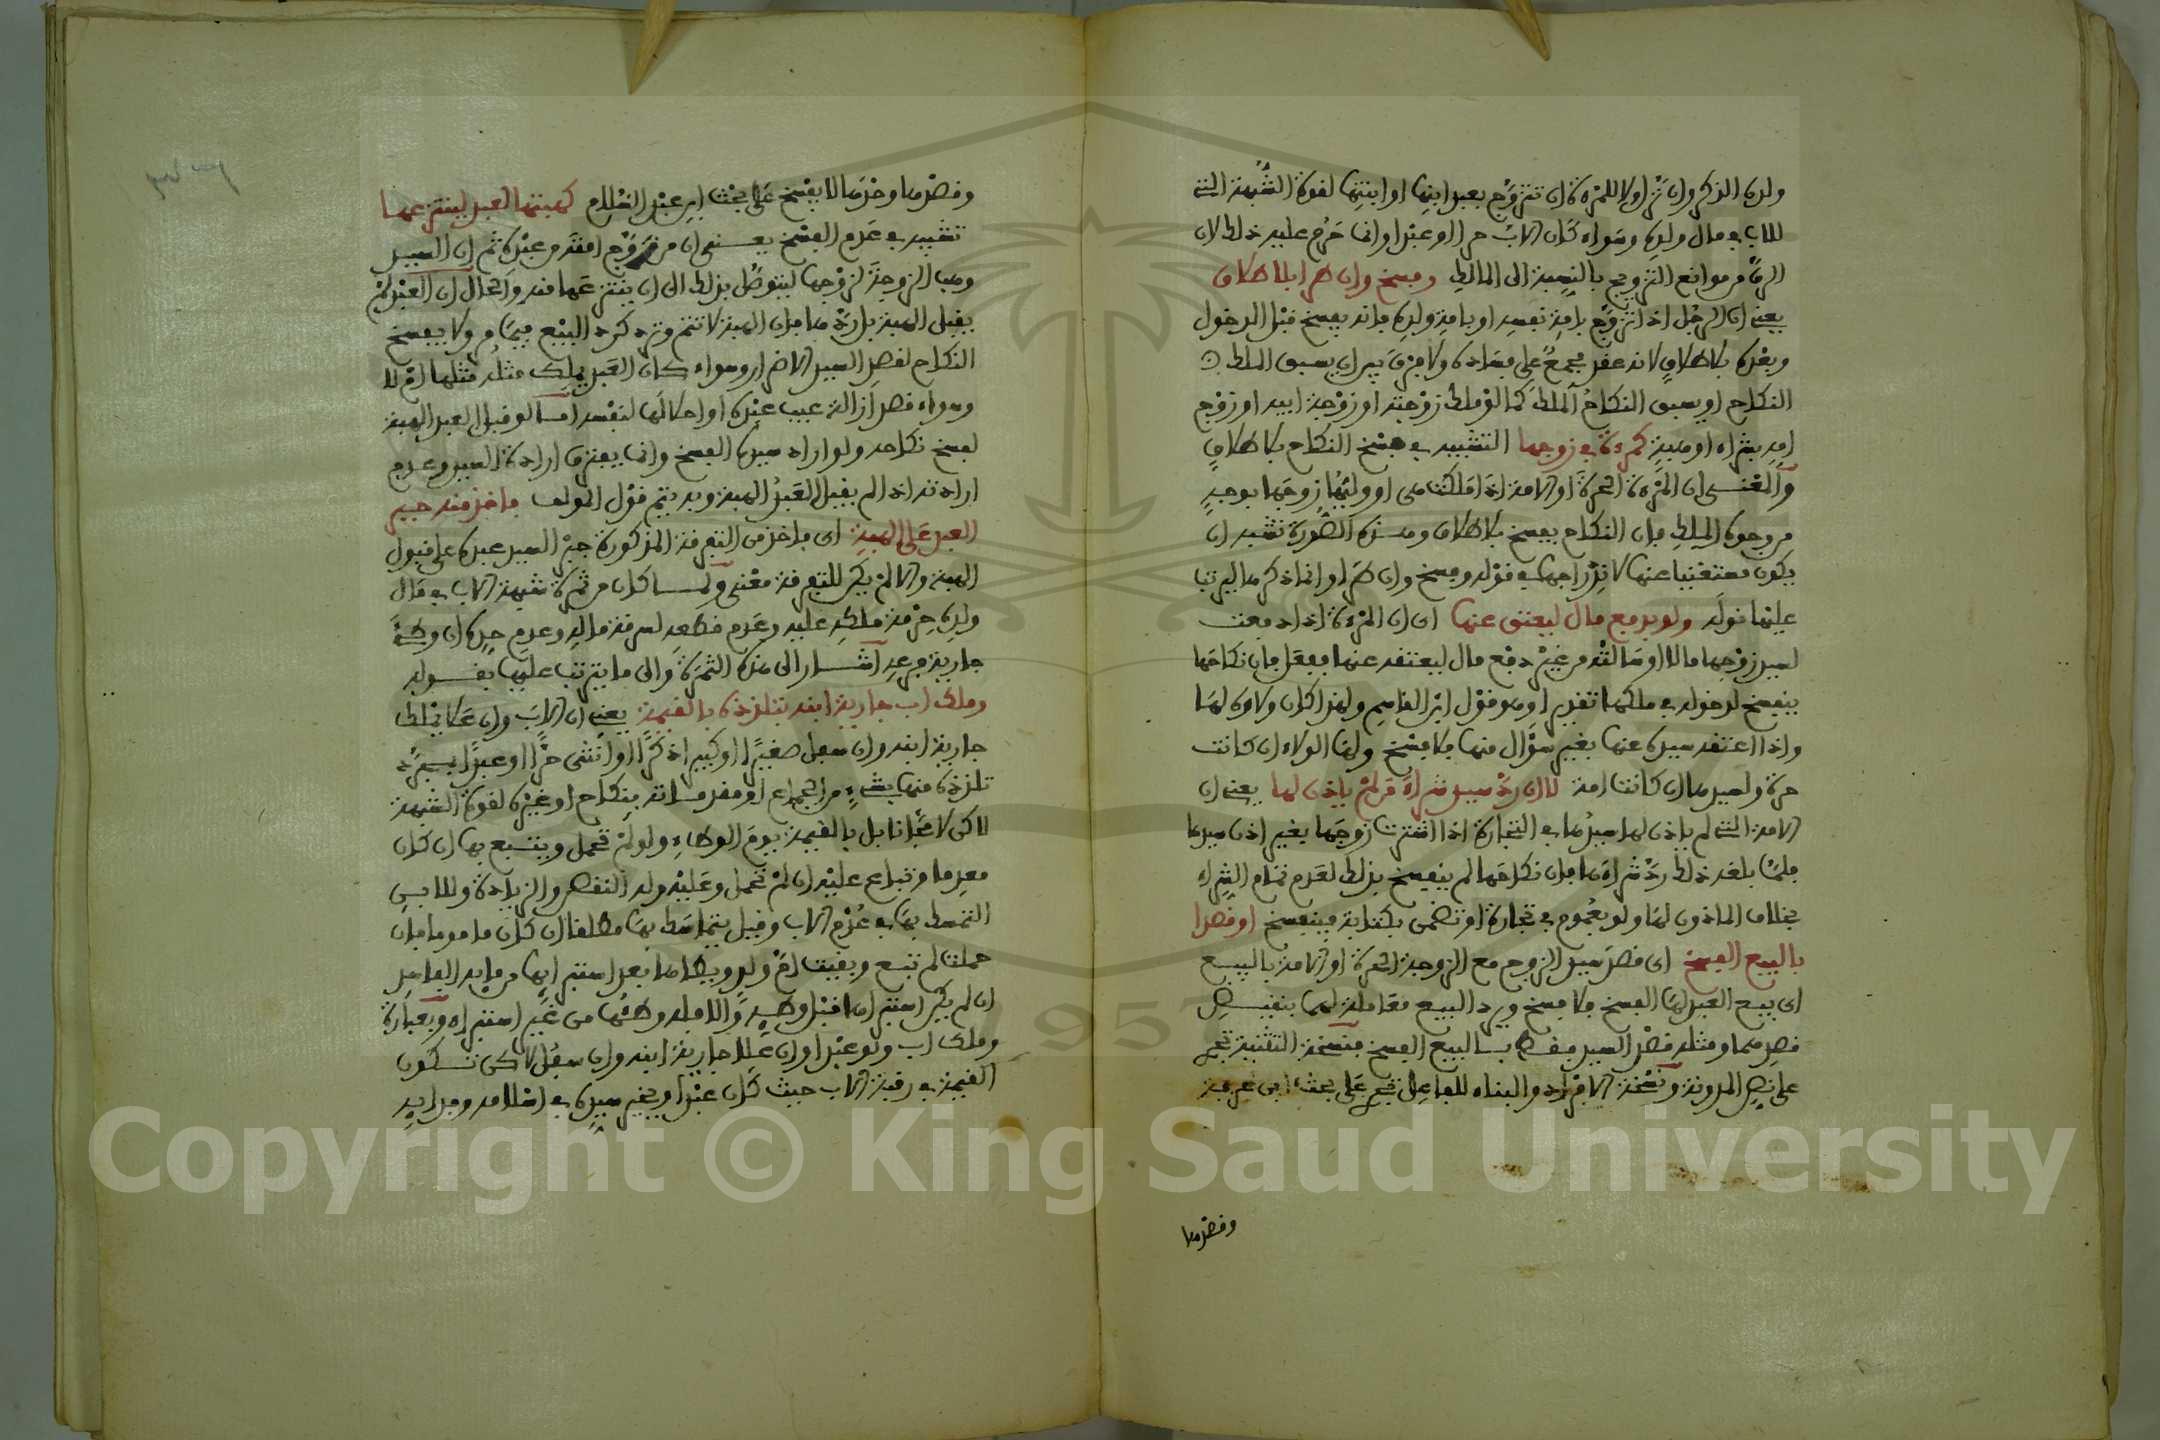 ولدها الذكر وان نزل ولا للمرءة ان تتزوج بعبد ابنها او ابنتها لقوة الشبهة التي
للاب في مال ولده وسواء كان الاب حرا او عبدا وانما حرم عليه ذلك لان
الرق من موانع التزويج بالنسبة الى المالك وفسخ وان طرا بلا طلاق
يعني ان الرجل اذا تزوج بامة نفسه او بامة ولده فانه يفسخ قبل الدخول
وبعده بلا طلاق لانه عقد مجمع على فساده ولا فرق بين ان يسبق الملك
النكاح او يسبق النكاح الملك كما لو ملك زوجته او زوجة ابيه او زوج
امه بشراء او هبة كمرءة في زوجها التشبيه في فسخ النكاح بلا طلاق
والمعنى ان المرءة الحرة او الامة اذا ملكت هي او وليها زوجها بوجه
من وجوه الملك فان النكاح يفسخ بلا طلاق وهذه الصورة تشبه ان
يكون مستغنيا عنها لاندراجها في قوله وفسخ وان طرا وانما ذكرها ليرتب
عليها قوله ولو بدفع مال ليعتق عنها اي ان المرءة اذا دفعت
لسيد زوجها مالا او سالته من غير دفع مال ليعتقه عنها ففعل فان نكاحها
ينفسخ لدخوله في ملكها تقديرا وهو قول ابن القاسم ولهذا كان ولاؤه لها
واذا اعتقه سيده عنها بغير سؤال منها فلا فسخ ولها الولاء ان كانت
حرة ولسيدها ان كانت امة لا ان رد سيد شراء من لم ياذن لها يعني ان
الامة التي لم ياذن لها سيدها في التجارة اذا اشترت زوجها بغير اذن سيدها
فلما بلغه ذلك رد شراءها فان نكاحها لم ينفسخ بذلك لعدم تمام الشراء
بخلاف الماذون لها ولو بعموم في تجارة او تضمن بكتابة فينفسخ او قصدا
بالبيع الفسخ اي قصد سيد الزوج مع الزوجة الحرة او الامة بالبيع
اي بيع العبد لها الفسخ فلا فسخ ويرد البيع معاملة لهما بنقيض
قصدهما ومثله قصد السيد فقط بالبيع الفسخ فنسخة التثنية تجري
على نص المدونة ونسخة الافراد والبناء للفاعل تجري على بحث ابن عرفة
وقصدها
وقصدها وحدها لا يفسخ على بحث ابن عبد السلام كهبتها للعبد لينتزعها
تشبيه في عدم الفسخ يعني ان من زوج امته من عبده ثم ان السيد
وهب الزوجة لزوجها ليتوصل بذلك الى ان ينتزعها منه والحال ان العبد لم
يقبل الهبة بل ردها فان الهبة لا تتم وترد كرد البيع فيما مر ولا يفسخ
النكاح لقصد السيد الاضرار وسواء كان العبد يملك مثله مثلها ام لا
وسواء قصد ازالة عيب عبده او احلالها لنفسه اما لو قبل العبد الهبة
لفسخ نكاحه ولو اراد سيده الفسخ وانما يفترق ارادة السيد وعدم
ارادته اذا لم يقبل العبد الهبة وبه يتم قول المولف فاخذ منه جبر
العبد على الهبة اي فاخذ من التفرقة المذكورة جبر السيد عبده على قبول
الهبة والا لم يكن للتفرقة معنى ولما كان من ثمرة شبهة الاب في مال
ولده حرمة ملكه عليه وعدم قطعه لسرقة ماله وعدم حده ان وطئ
جارية فرعه اشار الى هذه الثمرة والى ما يترتب عليها بقوله
وملك اب جارية ابنه بتلذذه بالقيمة يعني ان الاب وان علا يملك
جارية ابنه وان سفل صغيرا او كبيرا ذكرا او انثى حرا او عبدا بمجرد
تلذذه منها بشيء من الجماع او مقدماته بنكاح او غيره لقوة الشبهة
لاكن لا مجانا بل بالقيمة يوم الوطء ولو لم تحمل ويتبع بها ان كان
معدما وتباع عليه ان لم تحمل وعليه ولد النقص والزيادة وللابن
التمسك بها في عدم الاب وقيل يتماسك بها مطلقا ان كان مامونا فان
حملت لم تبع وبقيت ام ولد ويطاها بعد استبرائها من مائه الفاسد
ان لم يكن استبراها قبل وطئه والا فله وطئها من غير استبراء وبعبارة
وملك اب ولو عبدا وان علا جارية ابنه وان سفل لاكن تكون
القيمة في رقبة الاب حيث كان عبدا ويخير سيده في اسلامه وفدائه